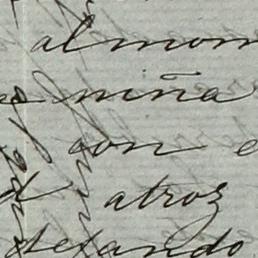 al mom
niña
con e
atroz
dejando